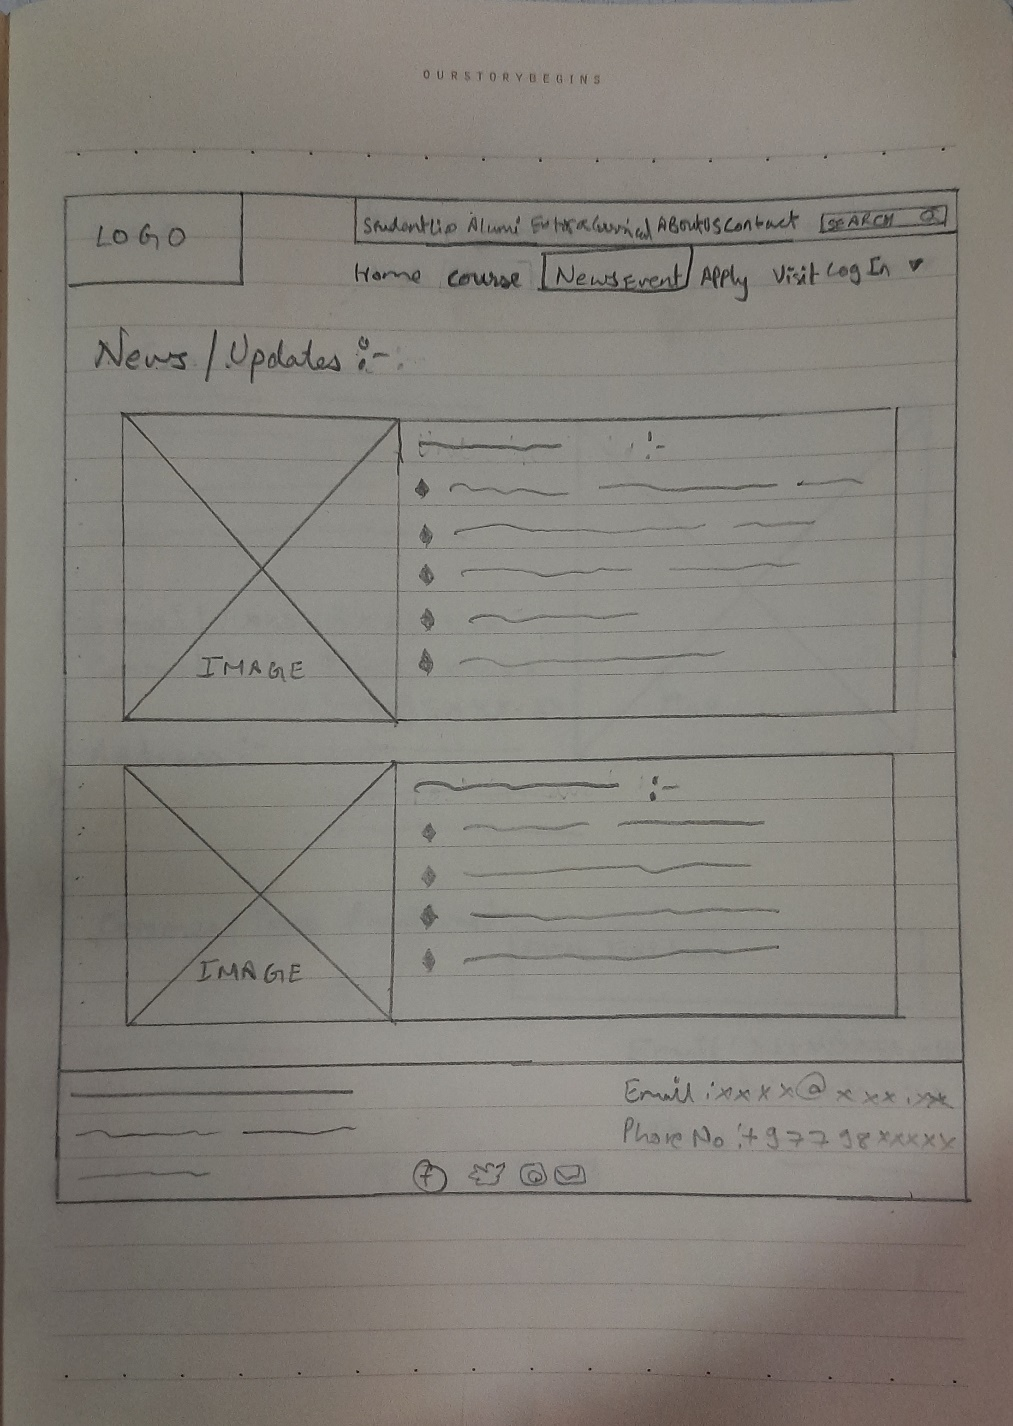 OURSTORYBEGINS
LOGO
Alumi Extracurrical ABoutUs Contact SEARCH
Home Course NewsEvent Apply Visit Log In
News/Updates :-
:-
IMAGE
:-
IMAGE
Email : xxxx@xxx.xx
Phone No :+97798xxxxx